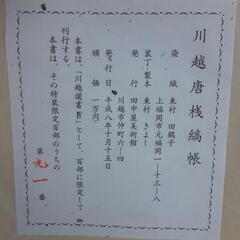 川越唐桟縞帳
染織　東村　田鶴子
上福岡市元福岡一ー十三ー八
装丁・製本　東村　きよし
発行　田中屋美術館
川越市仲町六ー四
発行日　平成八年十月十五日
頒価　一万円
本書は、「川越選書Ⅳ」として、百部に限定して
刊行する。
本書は、その特装限定百部のうちの
第九一番。